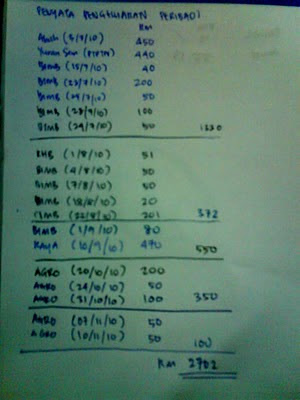 PENYATA PENGELUARAN PERIBADI
RM
(5/7/10) 450
(PTPTN) 440
BIMB (15/7/10) 40
BIMB (23/7/10) 200
BIMB 50
BIMB (28/7/10) 100
BIMB (29/7/10) 50 1330
RHB (1/8/10) 51
BIMB (4/8/10) 50
BIMB (7/8/10) 50
BIMB (18/8/10) 20
BIMB (22/8/10) 201 372
BIMB (1/9/10) 80
RAYA (10/9/10) 470 550
AGRO (20/10/10) 200
AGRO (24/10/10) 50
AGRO (31/10/10) 100 350
AGRO (07/11/10) 50
AGRO (10/11/10) 50 100
RM 2702